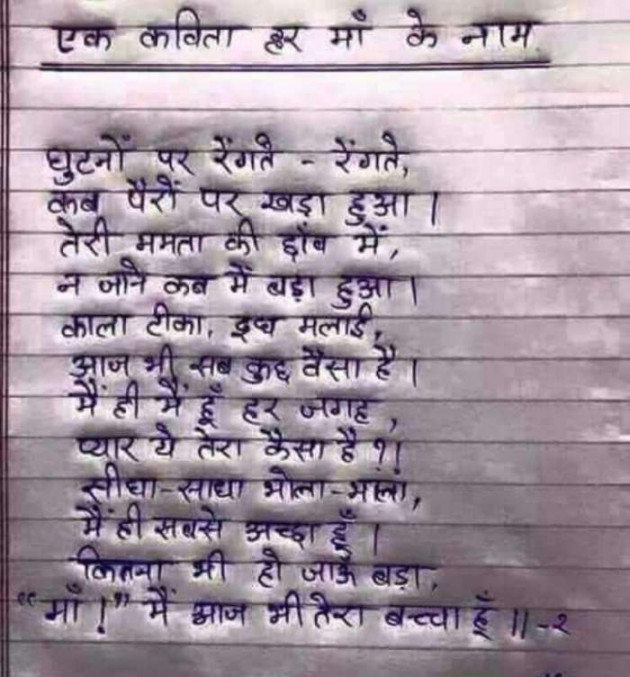 एक कविता हर माँ के नाम
घुटनों पर रेंगते - रेंगते,
कब पैरों पर खड़ा हुआ ।
तेरी ममता की छाँव में,
न जाने कब मैं बड़ा हुआ ।
काला टीका, दूध मलाई,
आज भी सब कुछ वैसा है ।
मैं ही मैं हूँ हर जगह,
प्यार ये तेरा कैसा है ?।
सीधा-साधा भोला-भाला,
मैं ही सबसे अच्छा हूँ ।
कितना भी हो जाऊँ बड़ा,
"माँ !" मैं आज भी तेरा बच्चा हूँ ॥-२